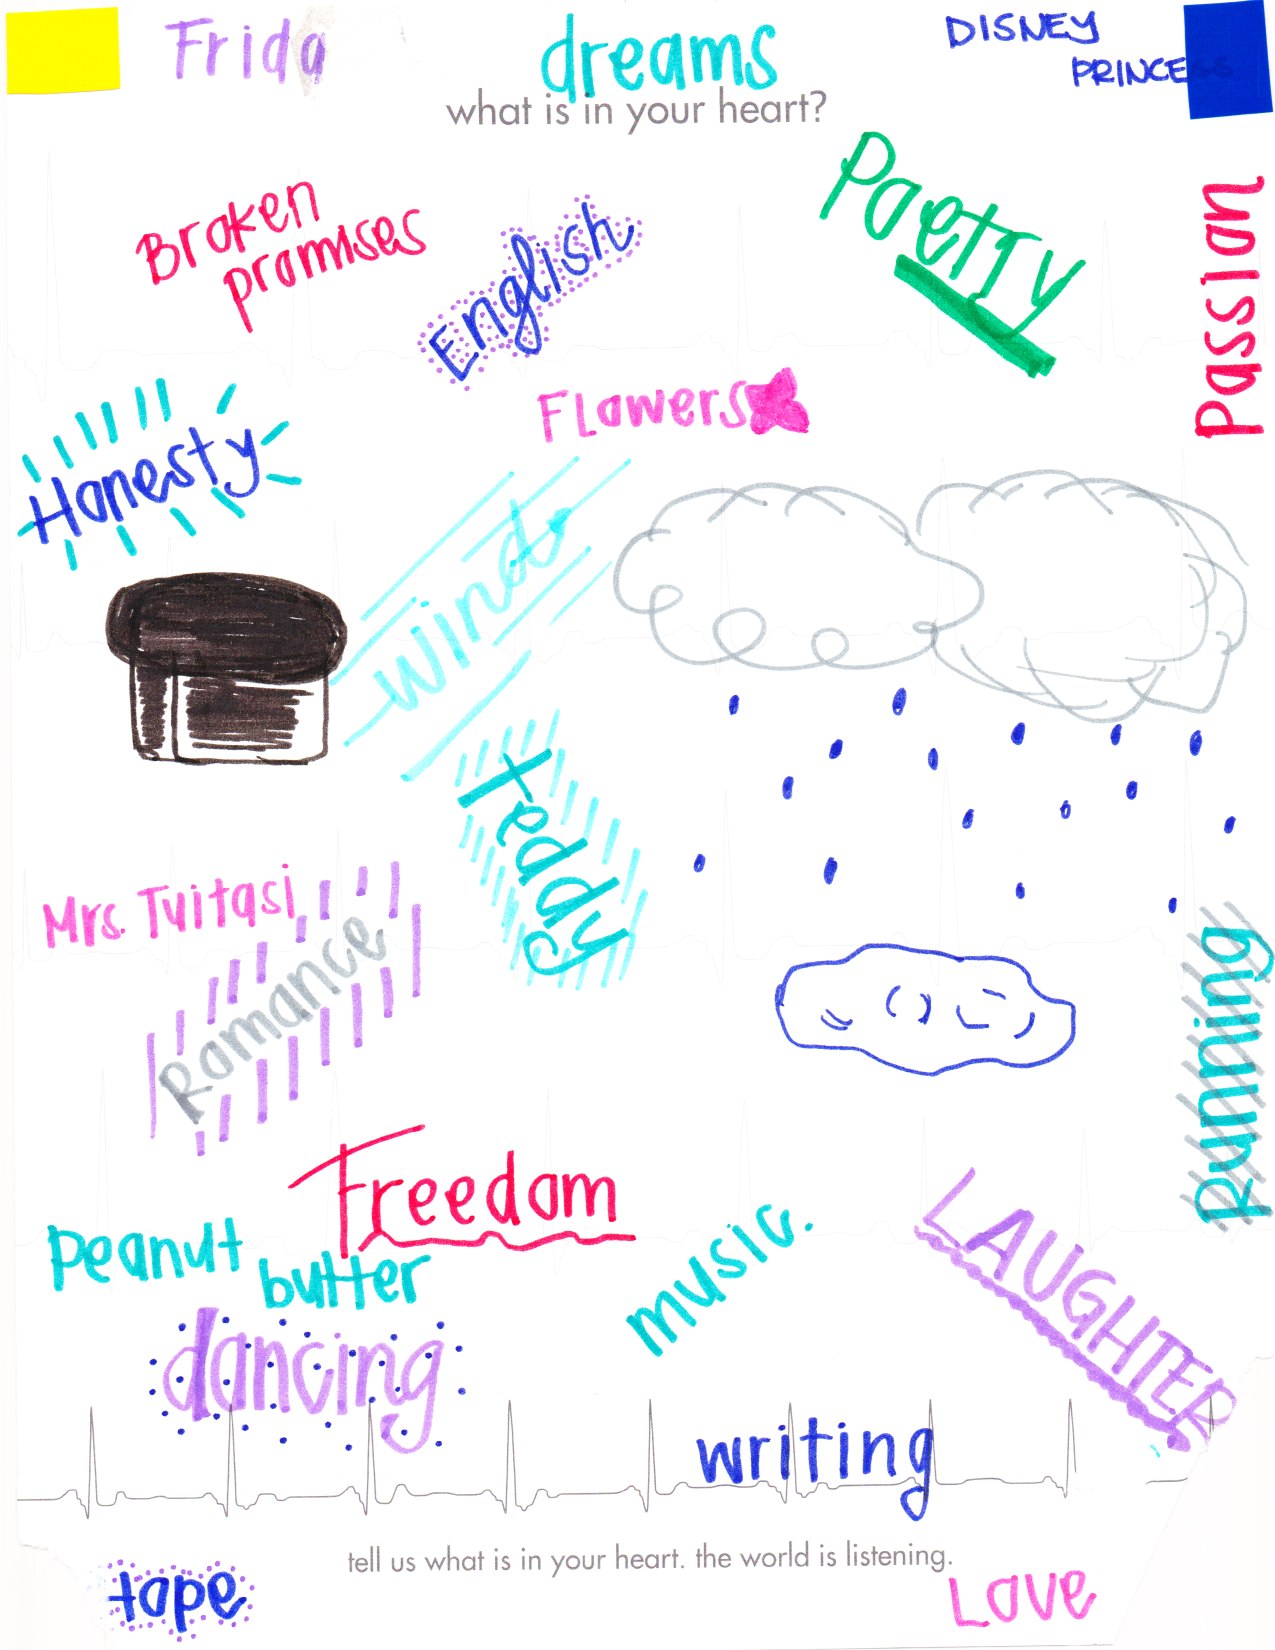 Frida
dreams
DISNEY
PRINCESS
what is in your heart?
Poetry
Passion
Broken
promises
English
Flowers
Honesty
Wind
Teddy
Mrs. Tuitasi
Romance
Running
Freedom
Peanut
butter
music.
LAUGHTER
dancing
writing
tell us what is in your heart. the world is listening.
tape
Love